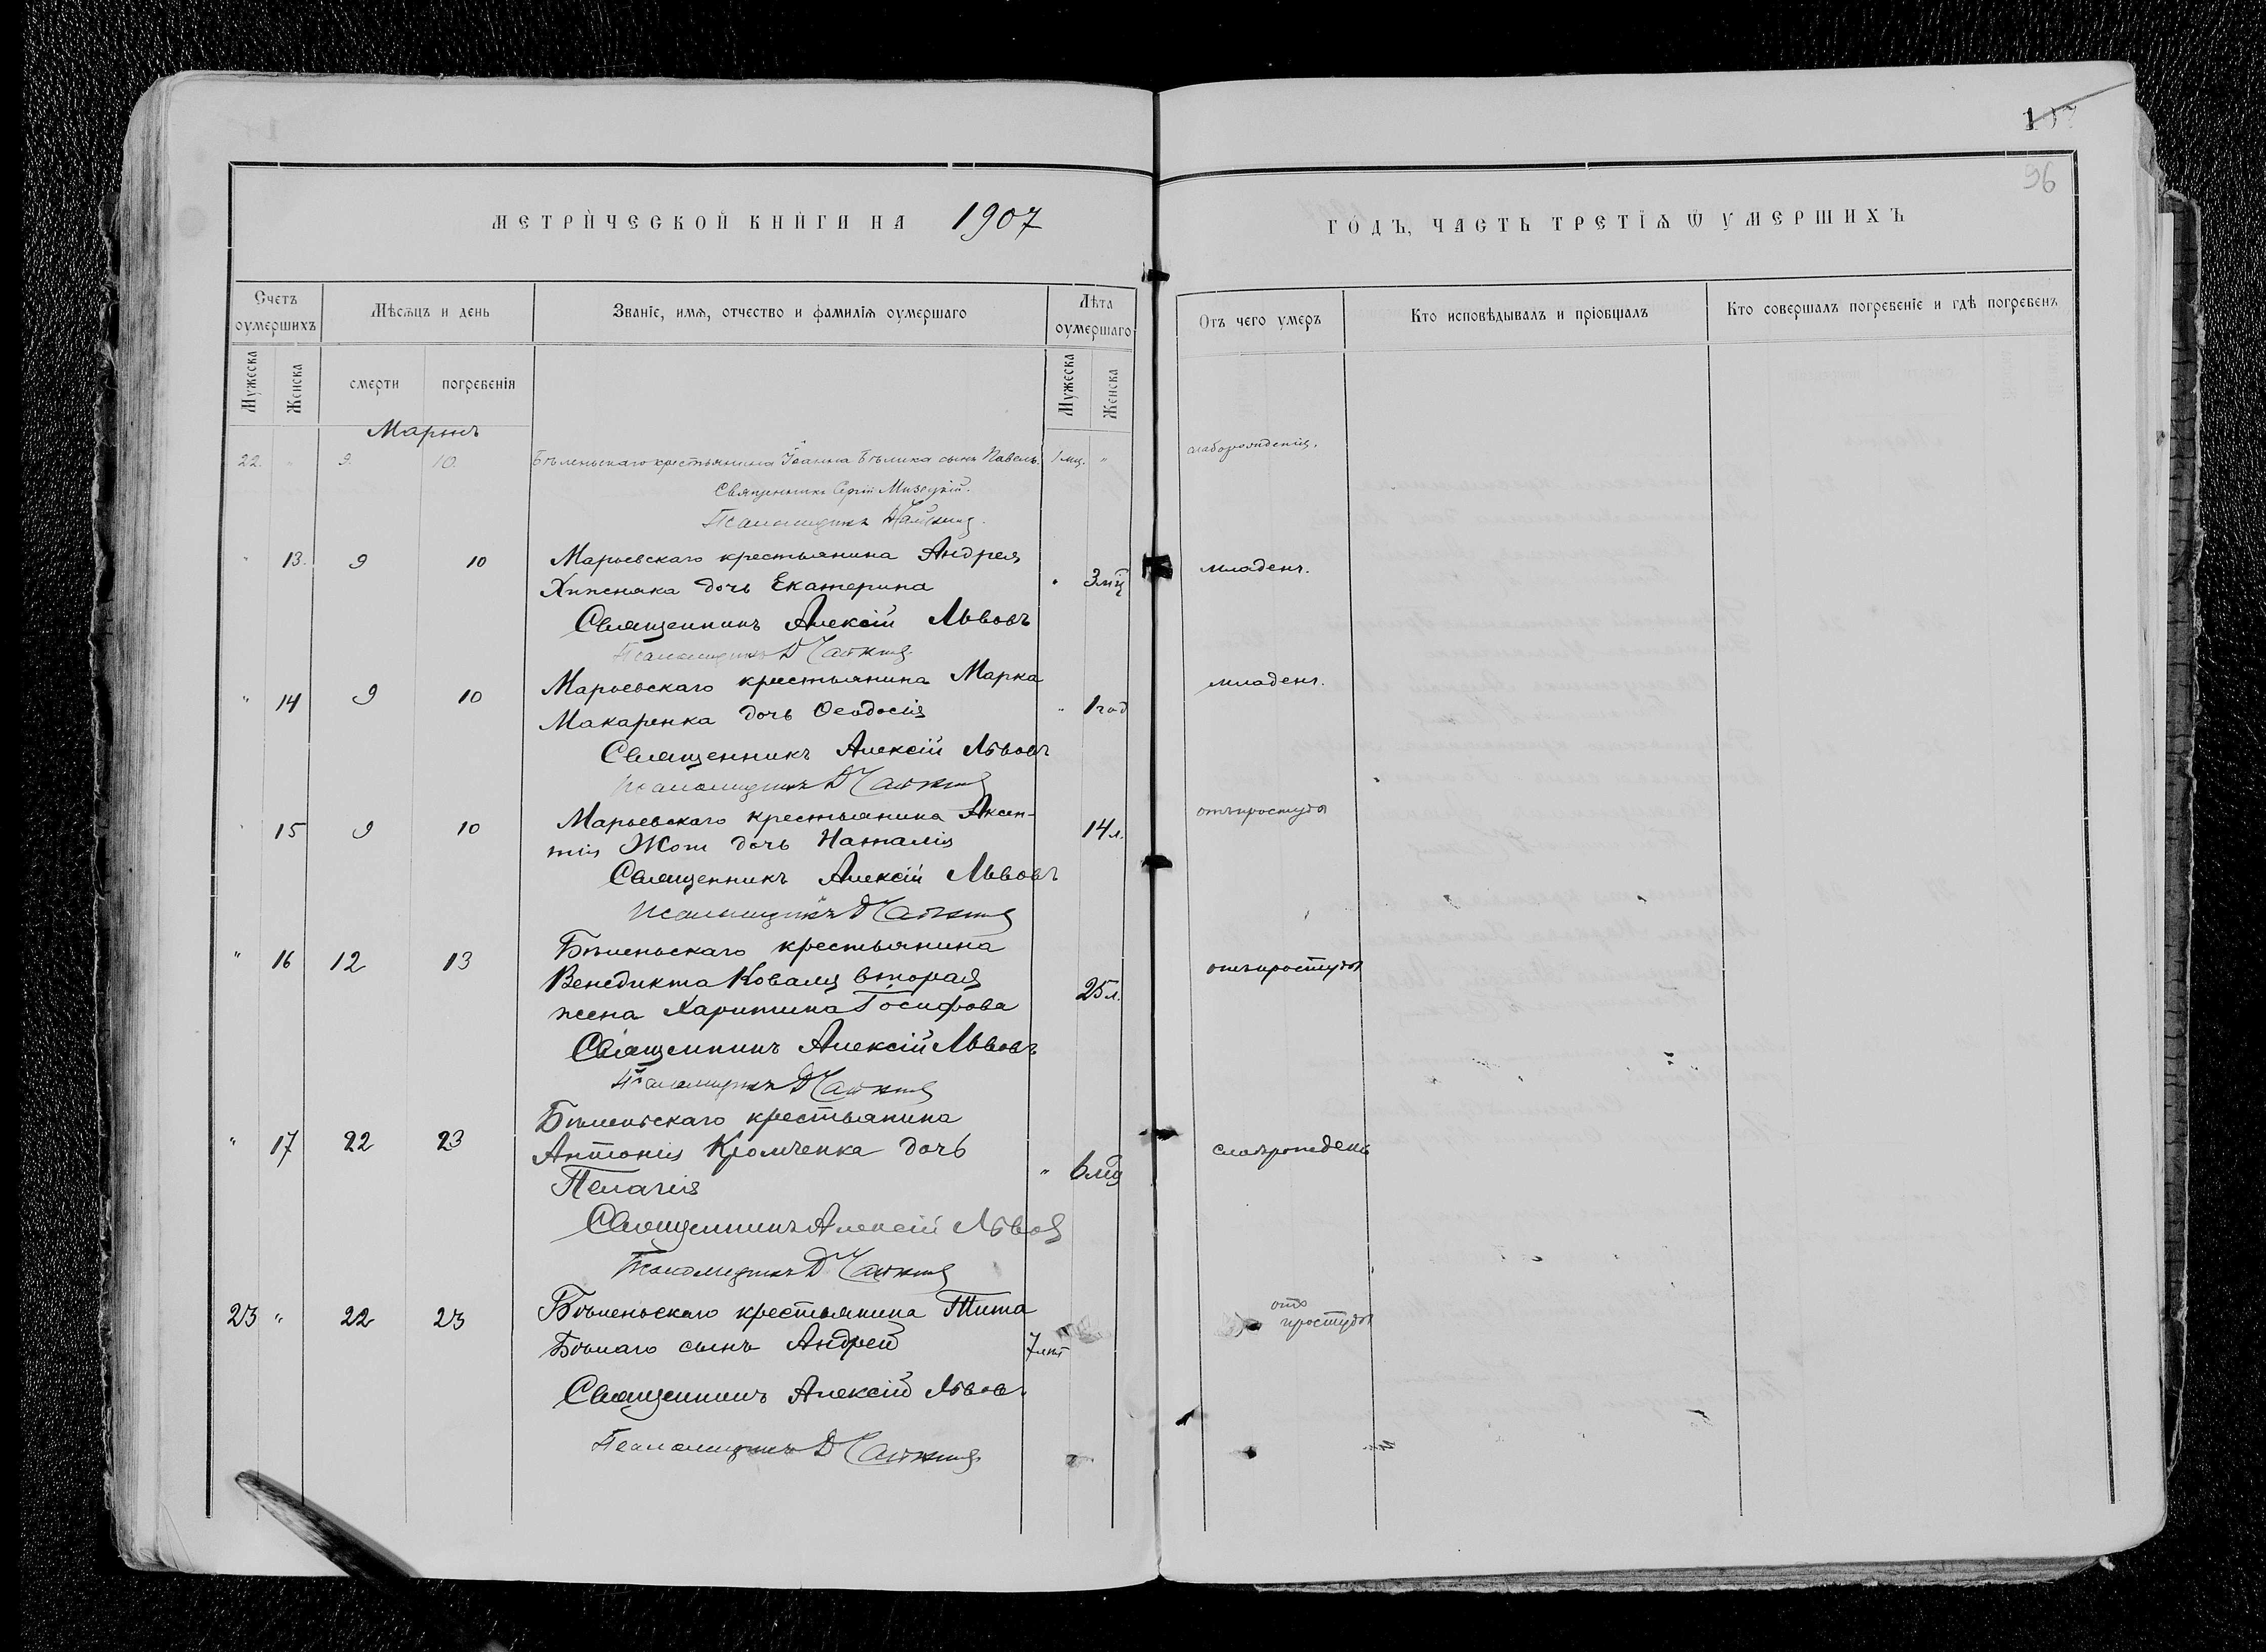 96
МЕТРИЧЕСКОЙ КНИГИ НА 1907
ГОДЪ, ЧАСТЬ ТРЕТІѦ Ѿ УМЕРШИХЪ
Счетъ оумершихъ
Мѣсѧцъ и день
Званіе, имѧ, отчество и фамиліѧ оумершаго
Лѣта оумершаго
Отъ чего умеръ
Кто исповѣдывалъ и пріобщалъ
Кто совершалъ погребеніе и гдѣ погребенъ
Мужеска
Женска
смерти
погребенія
Мужеска
Женска
Мартъ
22. " 9. 10. Бѣленьскаго крестьянина Іоанна Бѣлика сынъ Павелъ. 1 мц. " слаборожденія.
Священникъ Сергій
Псаломщикъ
" 13. 9 10 Марьевскаго крестьянина Андрея
Хижняка дочь Екатерина " 3 мц младенч.
Священникъ Алексій Львовъ
Псаломщикъ Д
" 14 9 10 Марьевскаго крестьянина Марка
Макаренка дочь Ѳеодосія " 1 год младенч.
Священникъ Алексій Львовъ
Псаломщикъ Д
" 15 9 10 Марьевскаго крестьянина Аксен-
тія дочь Наталія 14 л. отъ простуды
Священникъ Алексій Львовъ
Псаломщикъ Д
" 16 12 13 Бѣленьскаго крестьянина
Венедикта Коваля вторая
жена Харитина Іосифова 25 л. отъ простуды
Священникъ Алексій Львовъ
Псаломщикъ Д
" 17 22 23 Бѣленьскаго крестьянина
Антонія Кромченка дочь
Пелагія " 6 мц
Священникъ Алексій Львов
Псаломщикъ Д
23 " 22 23 Бѣленьскаго крестьянина Тита
Бѣлаго сынъ Андрей 7 лѣт отъ простуды
Священникъ Алексій Львов.
Псаломщикъ Д